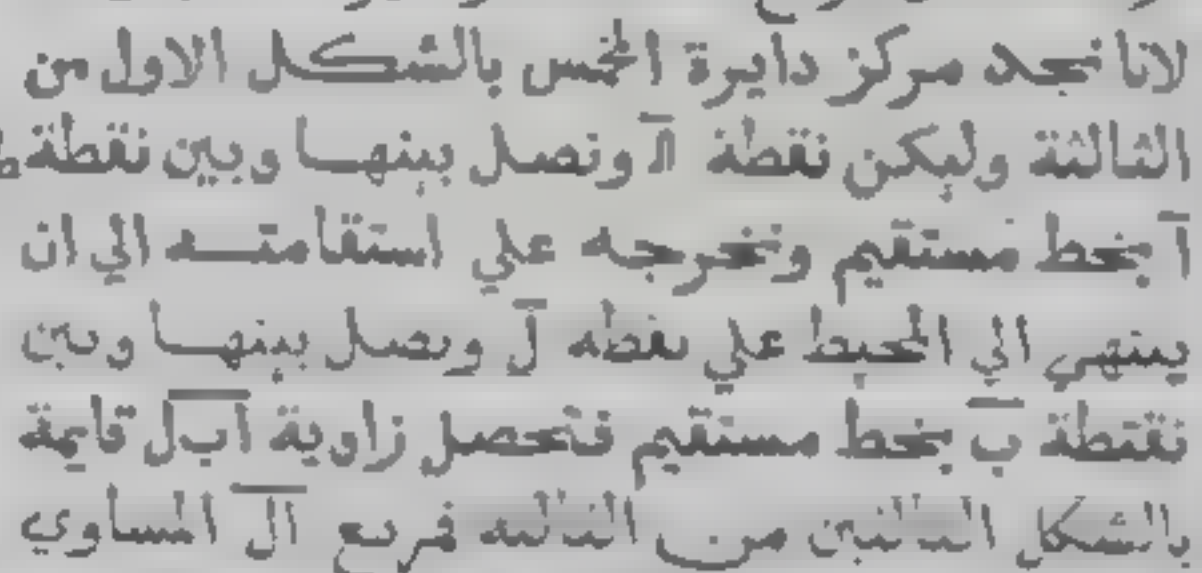 لانا نجد مركز دايرة المخمس بالشكل الاول من
الثالثة وليكن نقطة ونصل بينها وبين نقطة
آ بخط مستقيم ونخرجه علي استقامته الي ان
ينتهي الي المحيط علي نقطه ل ونصل بينها وبين
نقطة ب بخط مستقيم فتحصل زاوية ا ب ل قايمة
بالشكل الثلثين من الثالثه فربع ال المساوي